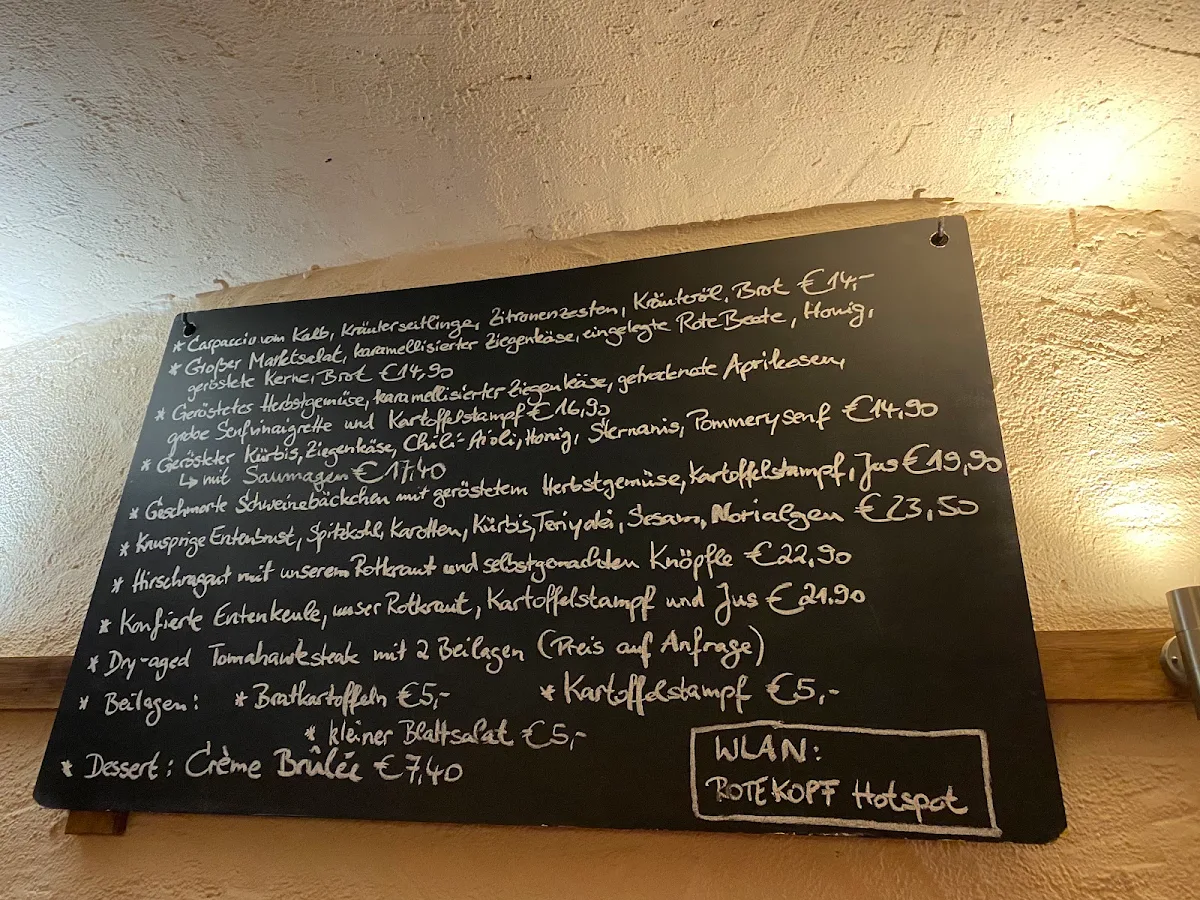 * Carpaccio vom Kalb, Kräuterseitlinge, Zitronenzesten, Kräuteröl, Brot €14,-
* Großer Marktsalat, karamellisierter Ziegenkäse, eingelegte Rote Beete, Honig,
geröstete Kerne, Brot €14,90
* Geröstetes Herbstgemüse, karamellisierter Ziegenkäse, getrocknete Aprikosen,
grobe Senfvinaigrette und Kartoffelstampf €16,90
* Gerösteter Kürbis, Ziegenkäse, Chili-Aioli, Honig, Sternanis, Pommerysenf €14,90
↳ mit Saumagen €17,40
* Geschmorte Schweinebäckchen mit geröstetem Herbstgemüse, Kartoffelstampf, Jus €19,90
* Knusprige Entenbrust, Spitzkohl, Karotten, Kürbis, Teriyaki, Sesam, Norialgen €23,50
* Hirschragout mit unserem Rotkraut und selbstgemachten Knöpfle €22,90
* Konfierte Entenkeule, unser Rotkraut, Kartoffelstampf und Jus €21,90
* Dry-aged Tomahawksteak mit 2 Beilagen (Preis auf Anfrage)
* Beilagen: * Bratkartoffeln €5,- * Kartoffelstampf €5,-
* kleiner Blattsalat €5,-
* Dessert: Crème Brûlée €7,40
WLAN:
ROTEKOPF Hotspot